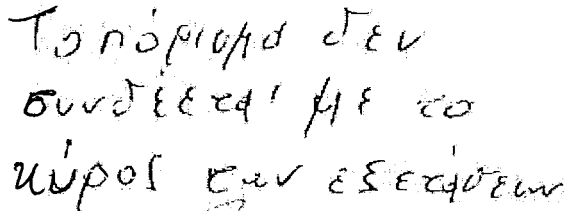 Το πόρισμα δεν
συνδέεται με το
κύρος των εξετάσεων